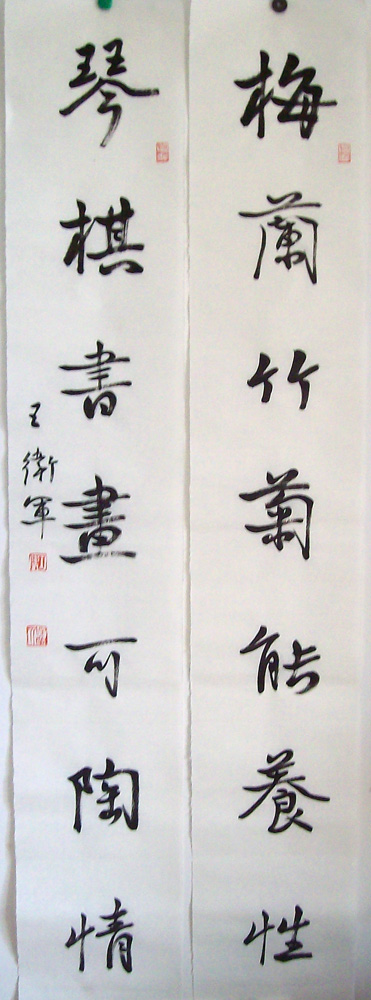 梅蘭竹菊能養性
琴棋書畫可陶情
王衛軍